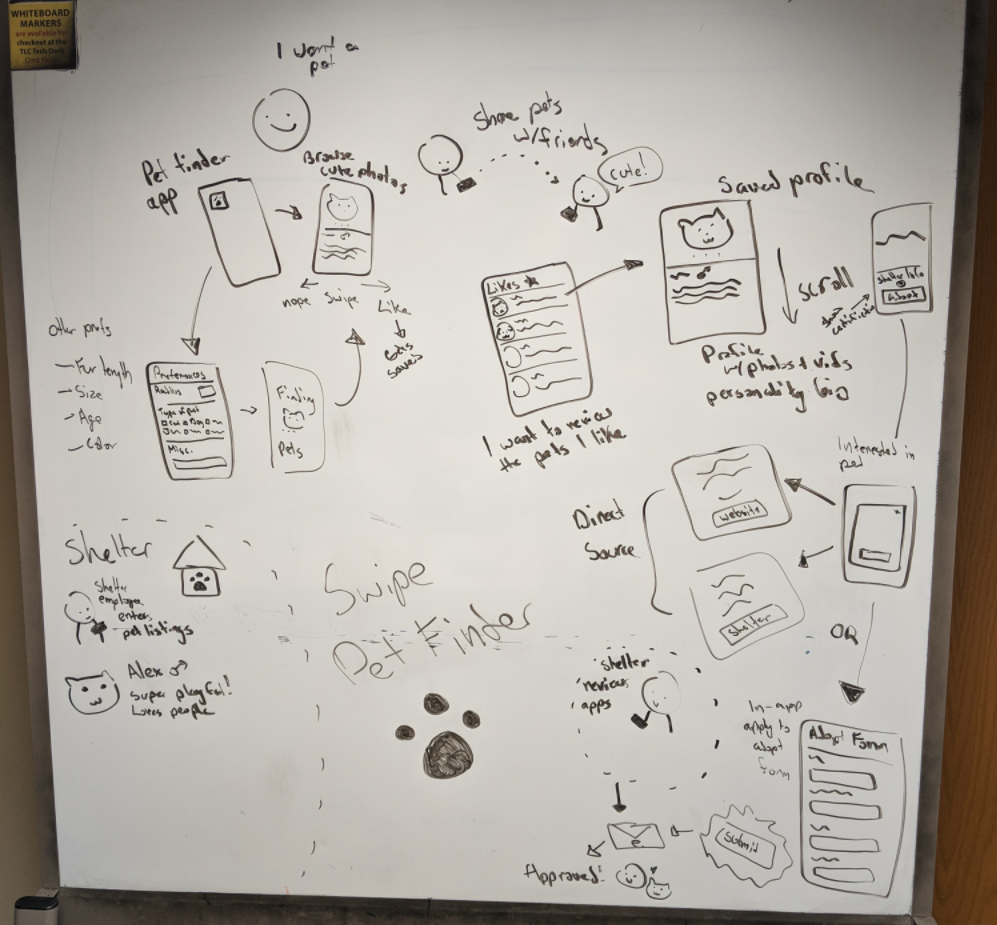 WHITEBOARD
MARKERS
are available for
checkout at the
TLC Tech Desk
I want a
pet
Pet finder
app
Browse
cute photos
nope
Swipe
Like
Gets
saved
Share pets
w/friends
cute!
Other prefs
- Fur length
- Size
- Age
- Color
Preferences
Radius
Type of pet
Cat
Dog
Misc.
Finding
Pets
Likes
I want to review
the pets I like
Saved profile
scroll
Profile
w/photos + vids
personality
Shelter Info
Interested in
pet
Direct
Source
website
shelter
OR
In-app
apply to
adopt
form
Adopt Form
Submit
shelter
reviews
apps
Approved!
Shelter
Shelter
employee
enters
pet listings
Alex ♂
super playful!
Loves people
Swipe
Pet Finder